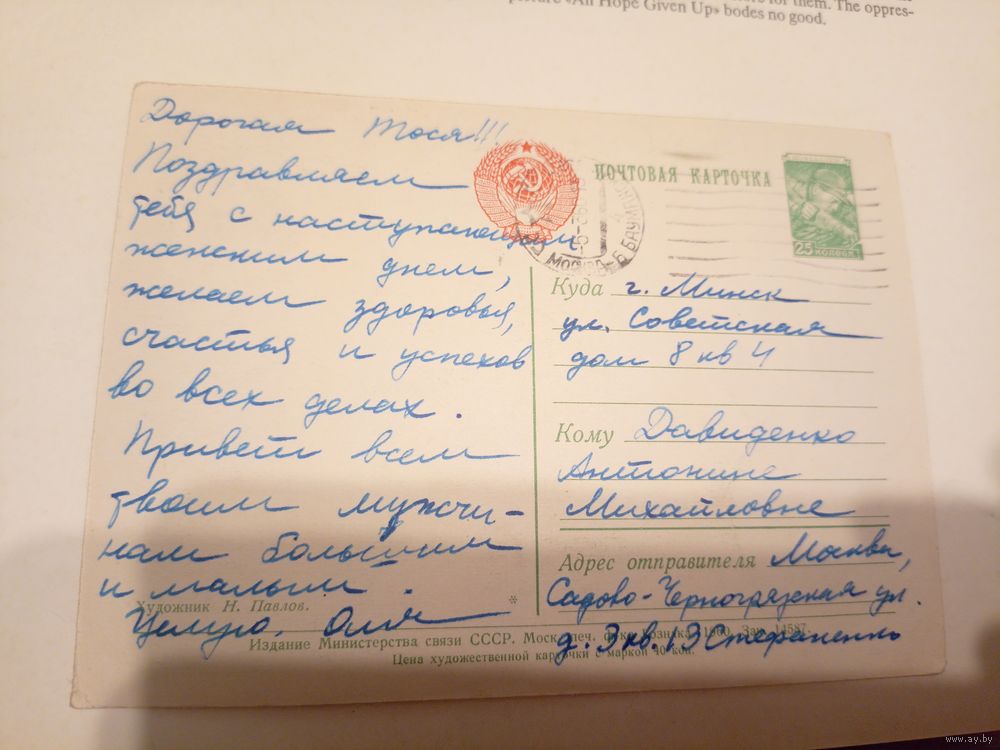 for them. The oppres-
«All Hope Given Up» bodes no good.
Дорогая Тося!!!
Поздравляем
тебя с наступающим
женским днем,
желаем здоровья,
счастья и успехов
во всех делах.
Привет всем
твоим мужчи-
нам большим
и малым.
Целую, Оля
Художник Н. Павлов.
ПОЧТОВАЯ КАРТОЧКА
25 КОПЕЕК
МОСКВА
Куда г. Минск
ул. Советская
дом 8 кв 4
Кому Давиденко
Антонине
Михайловне
Адрес отправителя Москва,
Садово-Черногрязская ул.
д. 3 кв. 13 Стефаненко
*
Издание Министерства связи СССР. Моск. печ. ф-ка Гознака. 1960. Зак. 14587.
Цена художественной карточки с маркой 40 коп.
www.ay.by